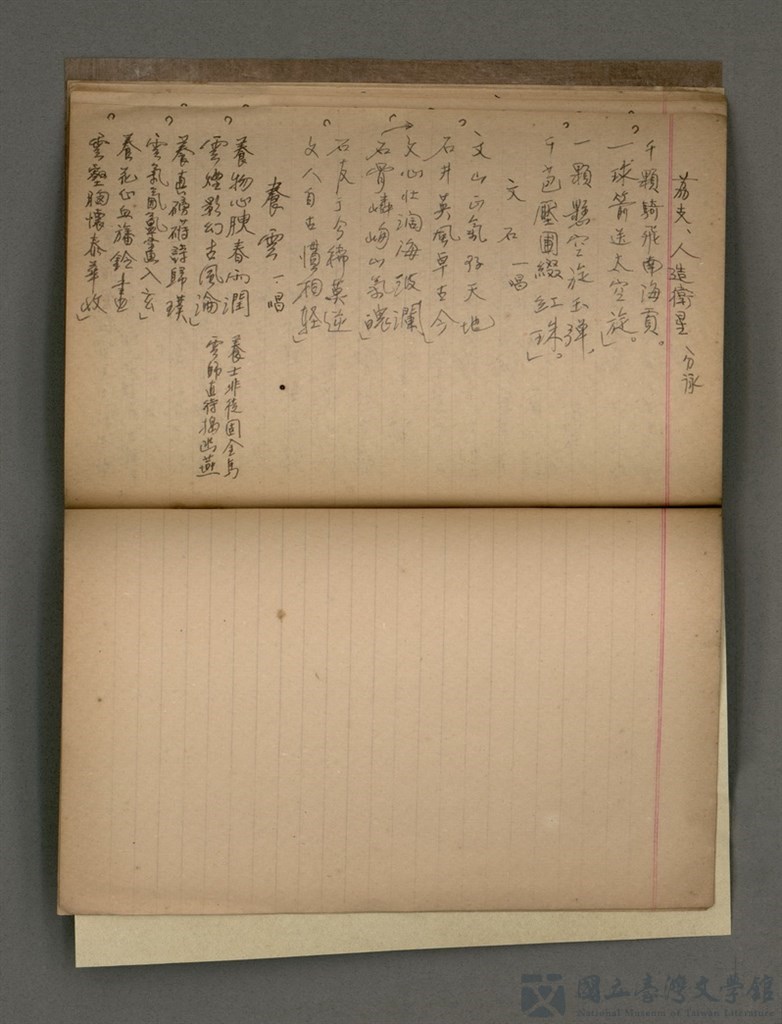 荔支、人造衛星 分詠
千顆騎飛南海貢。
一球箭送太空旋」。
一顆懸空旋玉彈、
千苞壓圃綴紅珠」。
文石 一唱
文山正氣存天地
石井英風卓古今」
文心壯濶海波瀾、
石骨嶙峋山氣魄」
石友于今稀莫逆
文人自古慣相輕」
養雲 一唱
養物心腴春雨潤
雲煙影幻古風淪」
養真磅礴詩歸璞
雲氣氤氳畫入玄」
養花心血旛鈴畫
雲壑胸懷泰華收」
養士非徒固金馬
雲師直待搗幽燕
國立臺灣文學館
National Museum of Taiwan Literature